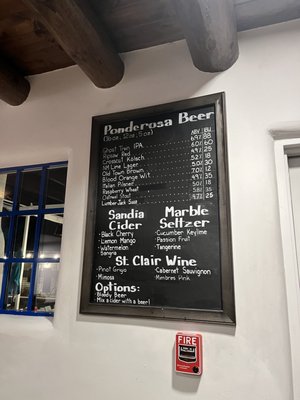 Ponderosa Beer
(10oz, 12oz, 5oz) ABV IBU
Ghost Town IPA
Rip Saw Red
Crosscut Kolsch
NM Lime Lager
Old Town Brown
Blood Orange Wit
Italian Pilsner
Raspberry Wheat
Oatmeal Stout
Lumber Jack Sour
Sandia Cider
- Black Cherry
- Lemon Mango
- Watermelon
Sangria
Marble Seltzer
- Cucumber Keylime
- Passion Fruit
- Tangerine
St. Clair Wine
- Pinot Grigio
- Mimosa
- Cabernet Sauvignon
- Mimbres Pink
Options:
- Bloody Beer
- Mix a cider with a beer!
FIRE